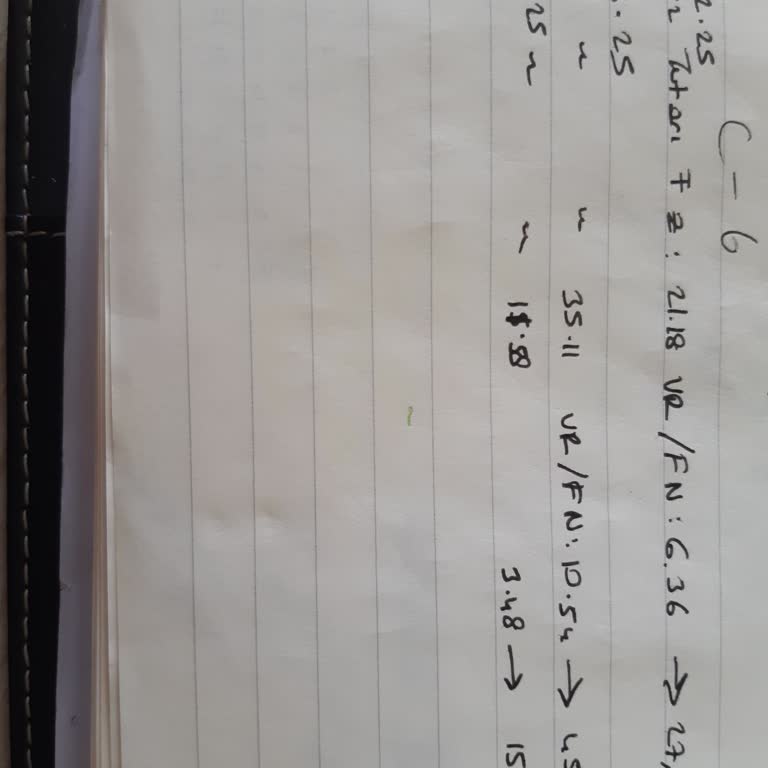 C-6
2.25
.2 Tutarı 7 z : 21.18 VR/FN: 6.36 → 27,
.25
" " 35.11 VR/FN: 10.54 → 45
25 " " 3.48 → 15